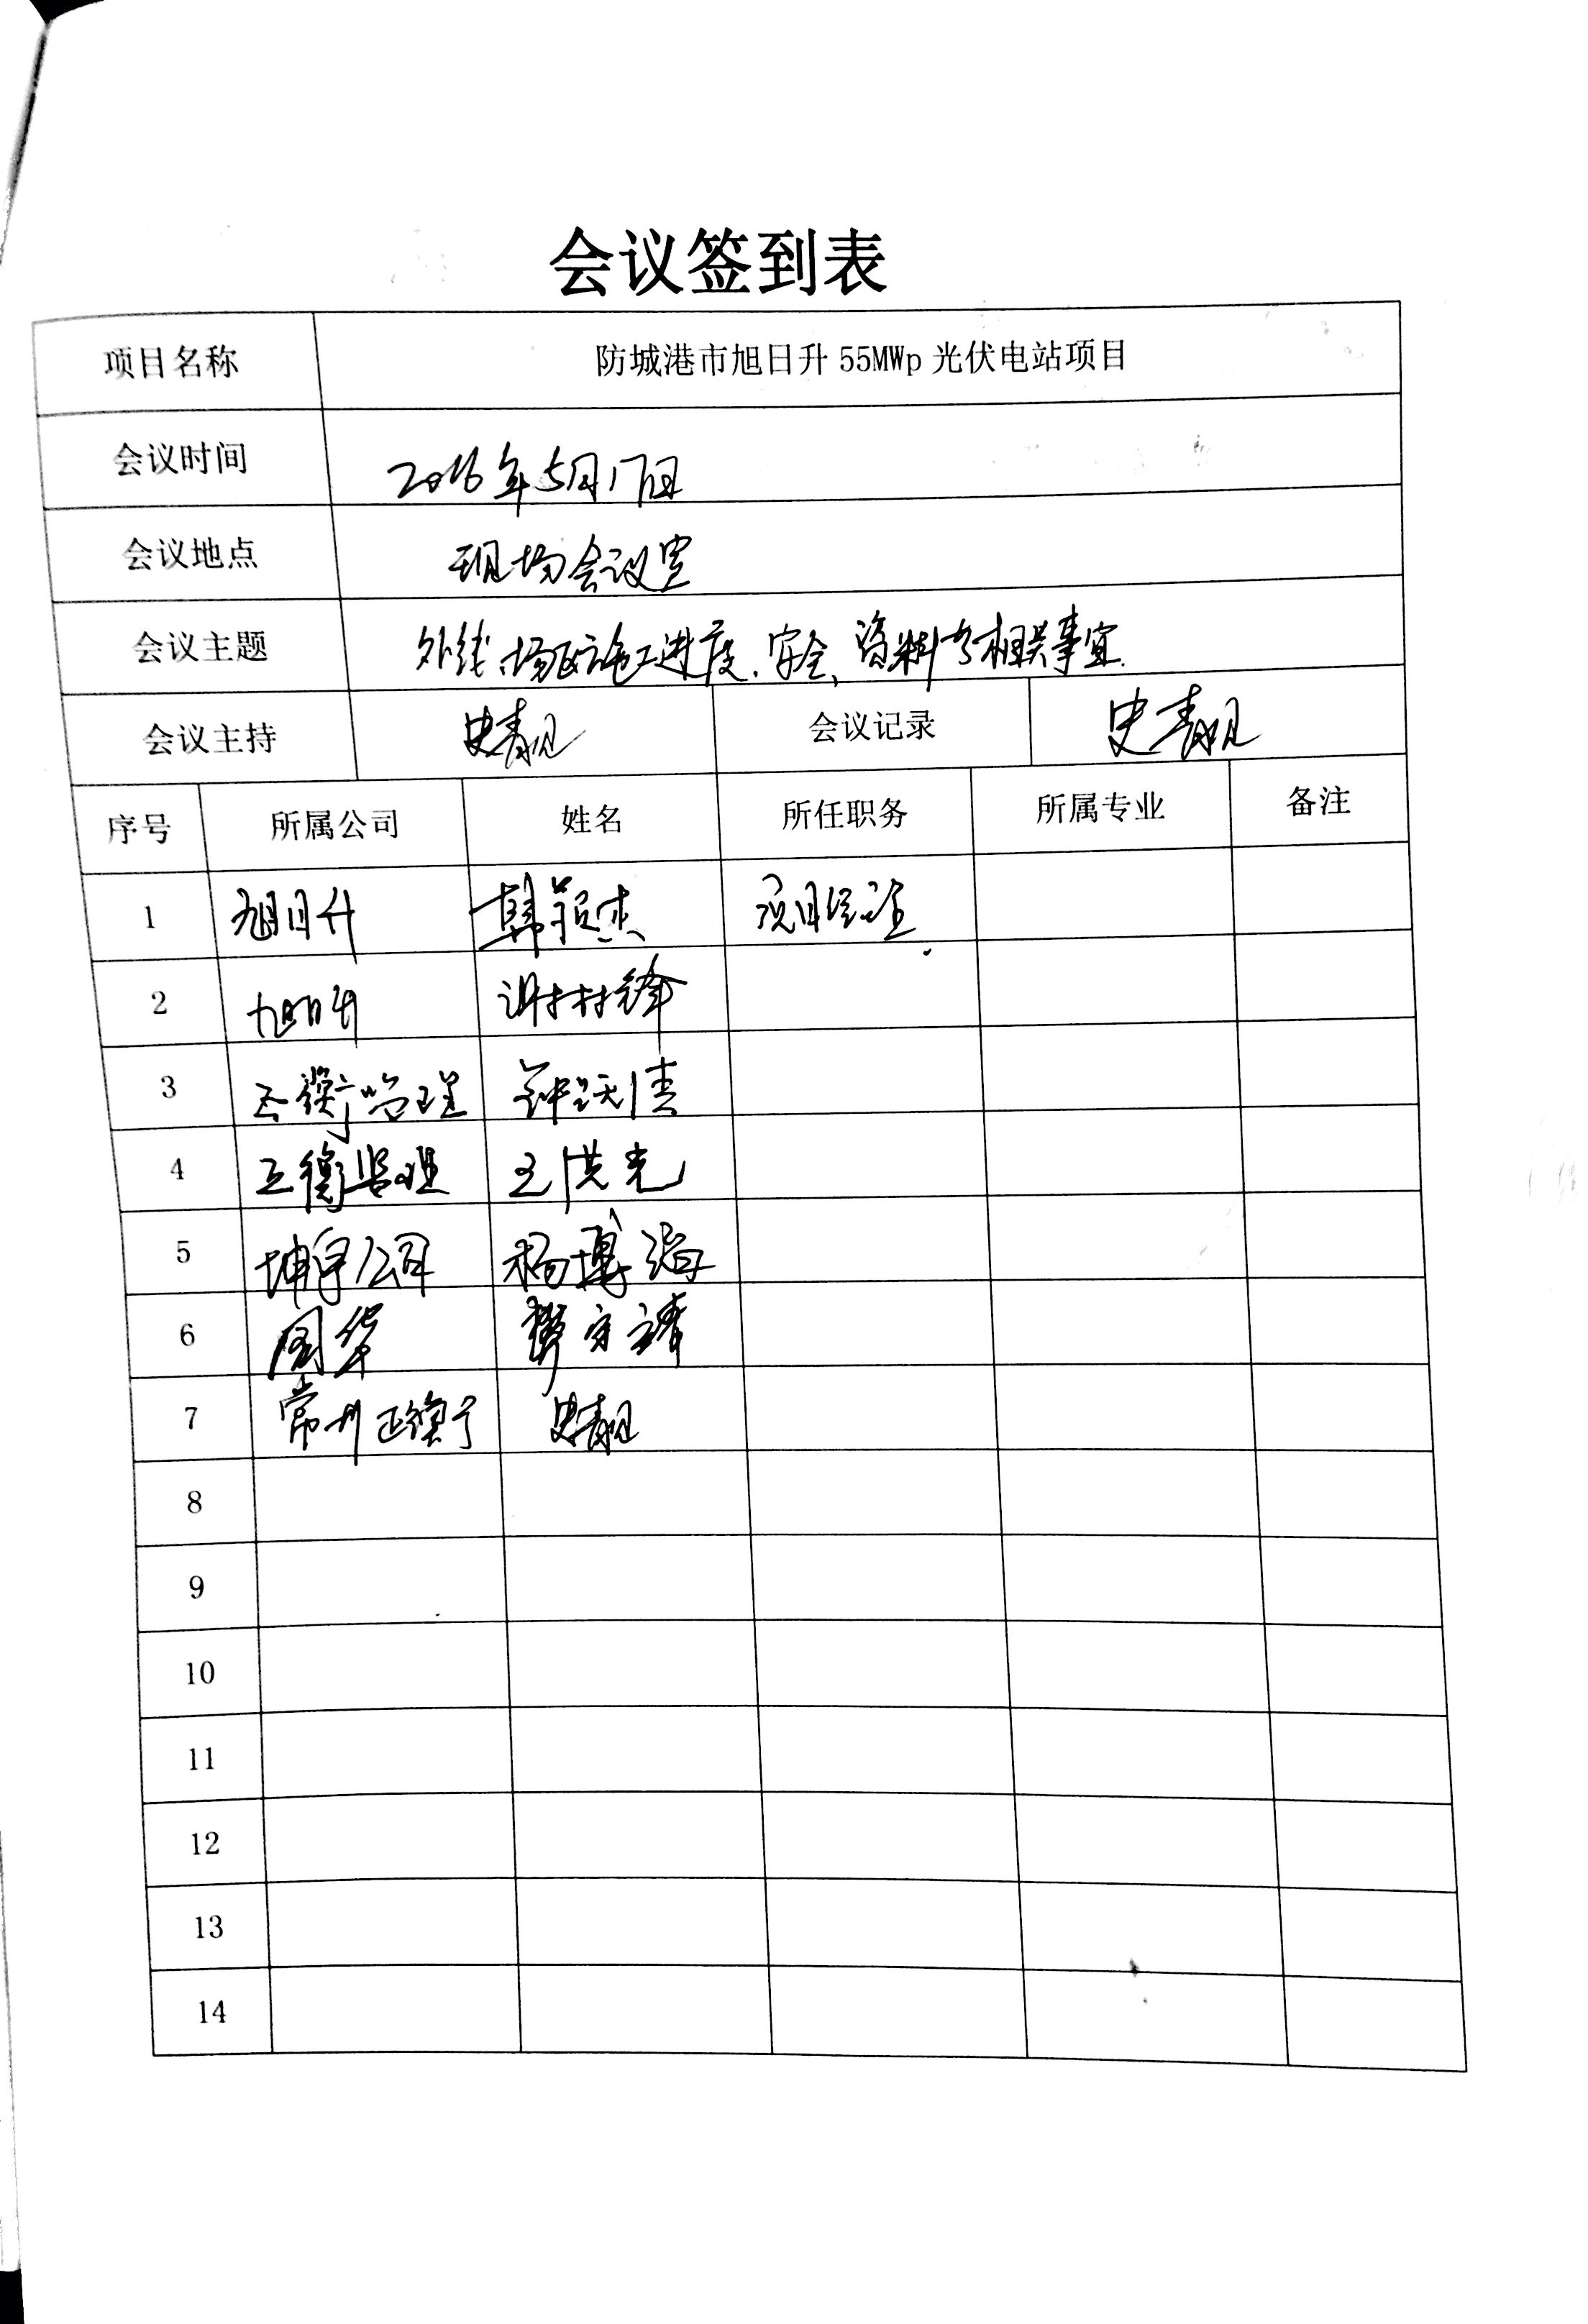 会议签到表
项目名称 防城港市旭日升 55MWp 光伏电站项目
会议时间 2016年5月17日
会议地点 现场会议室
会议主题 外线、场区施工进度、安全、资料等相关事宜.
会议主持 史青 会议记录 史青
序号 所属公司 姓名 所任职务 所属专业 备注
1 旭日升 韩 杰 项目经理
2 旭日升 谢村锋
3 正衡监理 钟 清
4 正衡监理 王洪光
5 坤宇公司 杨博海
6 国华
7 常州正衡 史青
8
9
10
11
12
13
14